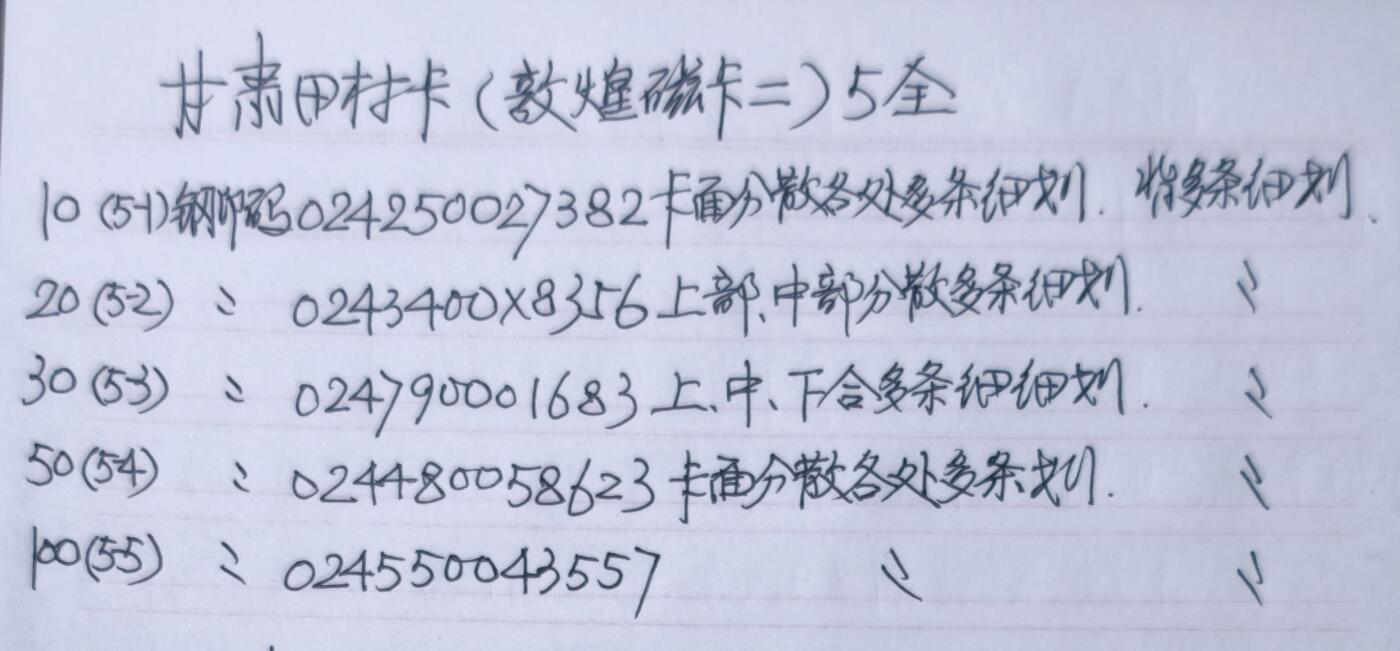 甘肃田村卡(敦煌磁卡二)5全
10(5-1)钢印码024250027382卡面分散各处多条细划.背多条细划.
20(5-2) 〃 0243400X8356上部、中部分散多条细划. 〃
30(5-3) 〃 024790001683上、中、下合多条细细划. 〃
50(5-4) 〃 024480058623卡面分散各处多条划. 〃
100(5-5) 〃 024550043557 〃 〃